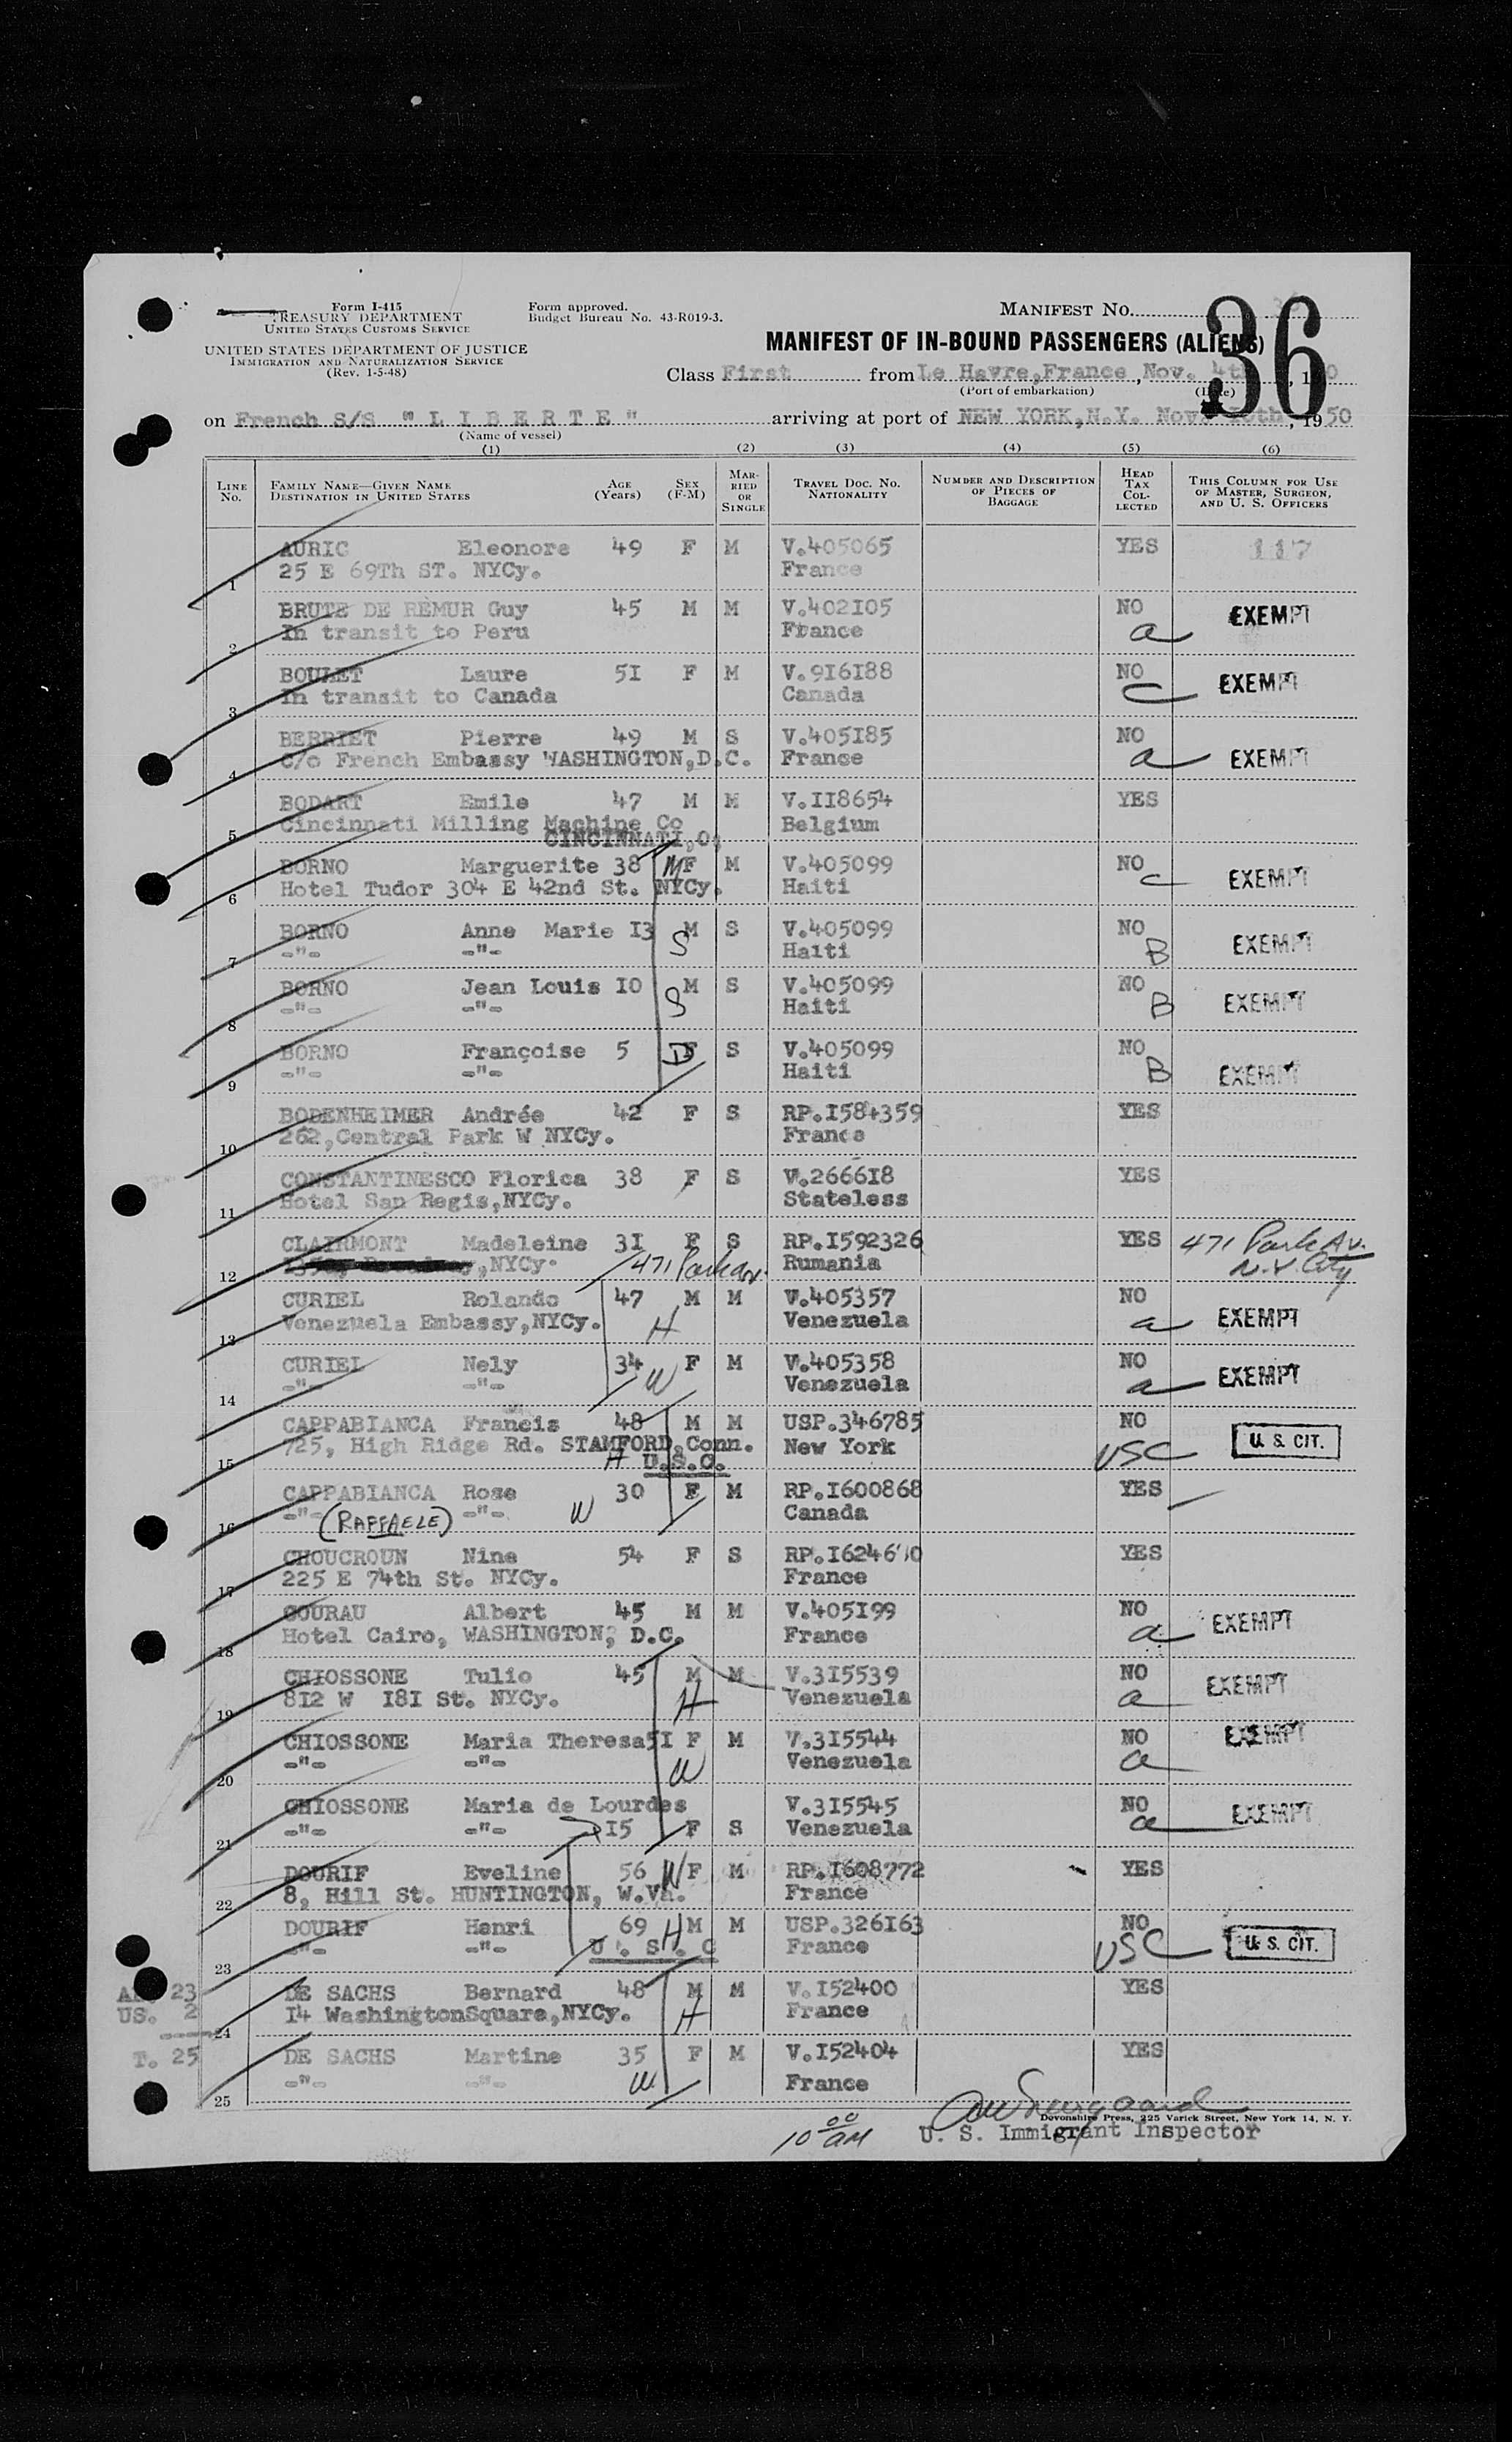 Form I-415
TREASURY DEPARTMENT
UNITED STATES CUSTOMS SERVICE
UNITED STATES DEPARTMENT OF JUSTICE
IMMIGRATION AND NATURALIZATION SERVICE
(Rev. 1-5-48)
Form approved.
Budget Bureau No. 43-R019-3.
MANIFEST No.
36
MANIFEST OF IN-BOUND PASSENGERS (ALIENS)
Class First from Le Havre,France ,Nov. 4th
(Port of embarkation) (Date)
on French S/S "L I B E R T E" arriving at port of NEW YORK,N.Y. Nov. , 1950
(Name of vessel)
(1) (2) (3) (4) (5) (6)
LINE No. FAMILY NAME—GIVEN NAME DESTINATION IN UNITED STATES AGE (Years) SEX (F-M) MARRIED OR SINGLE TRAVEL DOC. NO. NATIONALITY NUMBER AND DESCRIPTION OF PIECES OF BAGGAGE HEAD TAX COLLECTED THIS COLUMN FOR USE OF MASTER, SURGEON, AND U. S. OFFICERS
AURIC Eleonore 49 F M V.405065 YES 117
1 25 E 69Th ST. NYCy. France
BRUTE DE RÉMUR Guy 45 M M V.402105 NO EXEMPT
2 In transit to Peru France a
BOULET Laure 51 F M V.916188 NO EXEMPT
3 In transit to Canada Canada C
BERRIET Pierre 49 M S V.405185 NO EXEMPT
4 C/o French Embassy WASHINGTON,D.C. France a
BODART Emile 47 M M V.118654 YES
5 Cincinnati Milling Machine Co Belgium
CINCINNATI,O.
BORNO Marguerite 38 M F M V.405099 NO EXEMPT
6 Hotel Tudor 304 E 42nd St. NYCy. Haiti C
BORNO Anne Marie 13 M S V.405099 NO EXEMPT
7 -"- -"- S Haiti B
BORNO Jean Louis 10 M S V.405099 NO EXEMPT
8 -"- -"- S Haiti B
BORNO Françoise 5 D F S V.405099 NO EXEMPT
9 -"- -"- Haiti B
BODENHEIMER Andrée 42 F S RP.1584359 YES
10 262,Central Park W NYCy. France
CONSTANTINESCO Florica 38 F S V.266618 YES
11 Hotel San Regis,NYCy. Stateless
CLAIRMONT Madeleine 31 F S RP.1592326 YES 471 Park Av.
12 ,NYCy. 471 Park av. Rumania N.Y. City
CURIEL Rolando 47 M M V.405357 NO EXEMPT
13 Venezuela Embassy,NYCy. H Venezuela a
CURIEL Nely 34 F M V.405358 NO EXEMPT
14 -"- -"- W Venezuela a
CAPPABIANCA Francis 48 M M USP.346785 NO U. S. CIT.
15 725, High Ridge Rd. STAMFORD,Conn. New York USC
H U.S.C.
CAPPABIANCA Rose 30 F M RP.1600868 YES
16 -"- (RAFFAELE) -"- W Canada
CHOUCROUN Nine 54 F S YES
17 225 E 74th St. NYCy. France
GOURAU Albert 45 M M V.405199 NO EXEMPT
18 Hotel Cairo, WASHINGTON, D.C. France a
CHIOSSONE Tulio 45 M M V.315539 NO EXEMPT
19 812 W 181 St. NYCy. H Venezuela a
CHIOSSONE Maria Theresa 51 F M V.315544 NO EXEMPT
20 -"- -"- W Venezuela a
CHIOSSONE Maria de Lourdes V.315545 NO EXEMPT
21 -"- -"- D 15 F S Venezuela a
DOURIF Eveline 56 W F M RP.1608772 YES
22 8, Hill St. HUNTINGTON, W.Va. France
DOURIF Henri 69 H M M USP.326163 NO U. S. CIT.
23 -"- -"- U. S. C France USC
DE SACHS Bernard 48 M M V.152400 YES
24 14 WashingtonSquare,NYCy. H France
DE SACHS Martine 35 F M V.152404 YES
25 -"- -"- W France
23
US. 2
T. 25
Devonshire Press, 225 Varick Street, New York 14, N. Y.
10 00 AM U. S. Immigrant Inspector